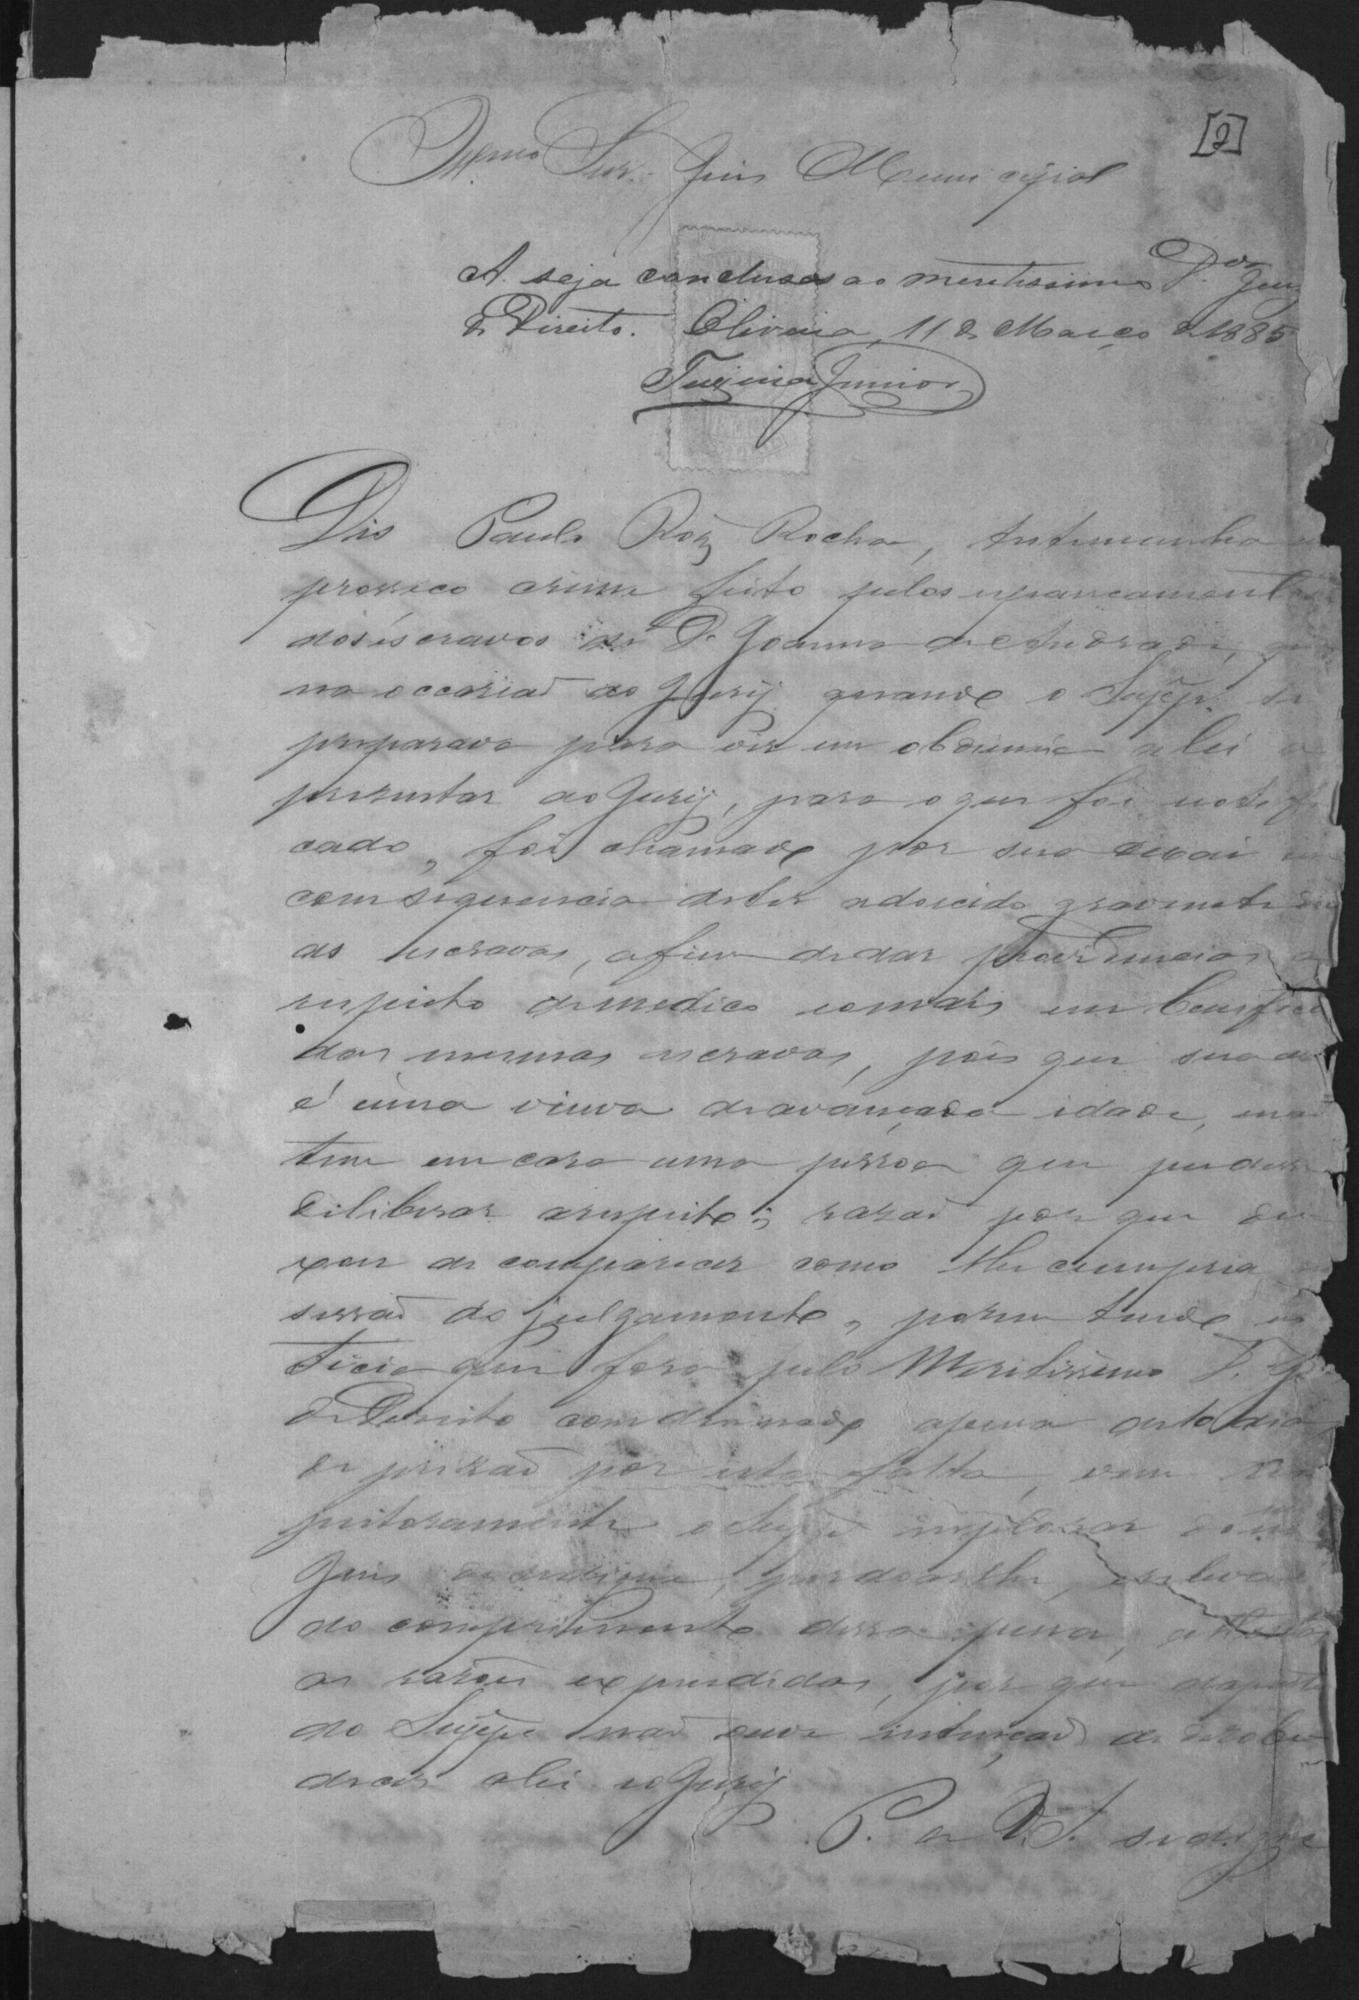 [2]
Illmo Snr. Juis Municipal
A. seja conclusos ao meritissimo Dor. Juiz
de Direito. Oliveira, 11 de Março de 1885
Junior
Dis Paulo Roiz Rocha, testemunha
processo crime feito pelos espancamentos
dos escravos de D. Joanna de Andrade,
na occasiaõ do Jury quando o Suppe. se
preparava para vir em obdiencia a lei
prezentar ao Jury, para o que foi notifi
cado, foi chamado por sua
comsequencia de ter adoecido gravemente
as escravas, afim de dar providencias a
respeito de medico e o mais em beneficio
das mesmas escravas, pois que sua
é uma viuva de avançada idade,
tem em casa uma pessoa que pudesse
diliberar a respeito; razaõ por que dei
xou de comparecer como lhe cumpria
sessaõ do julgamento, porem tendo no
ticia que fora pelo Meritissimo D.
de Dereito comdemnado a pena
de prizaõ por esta falta, vem res
peitozamente o Suppe. implorar
Juis se digne, perdoar lhe,
do comprimento dessa pena,
as razões expendidas, por que da parte
do Suppe. naõ ouve intençaõ de desobe
decer a lei e o Jury
P. a V. S. se digne